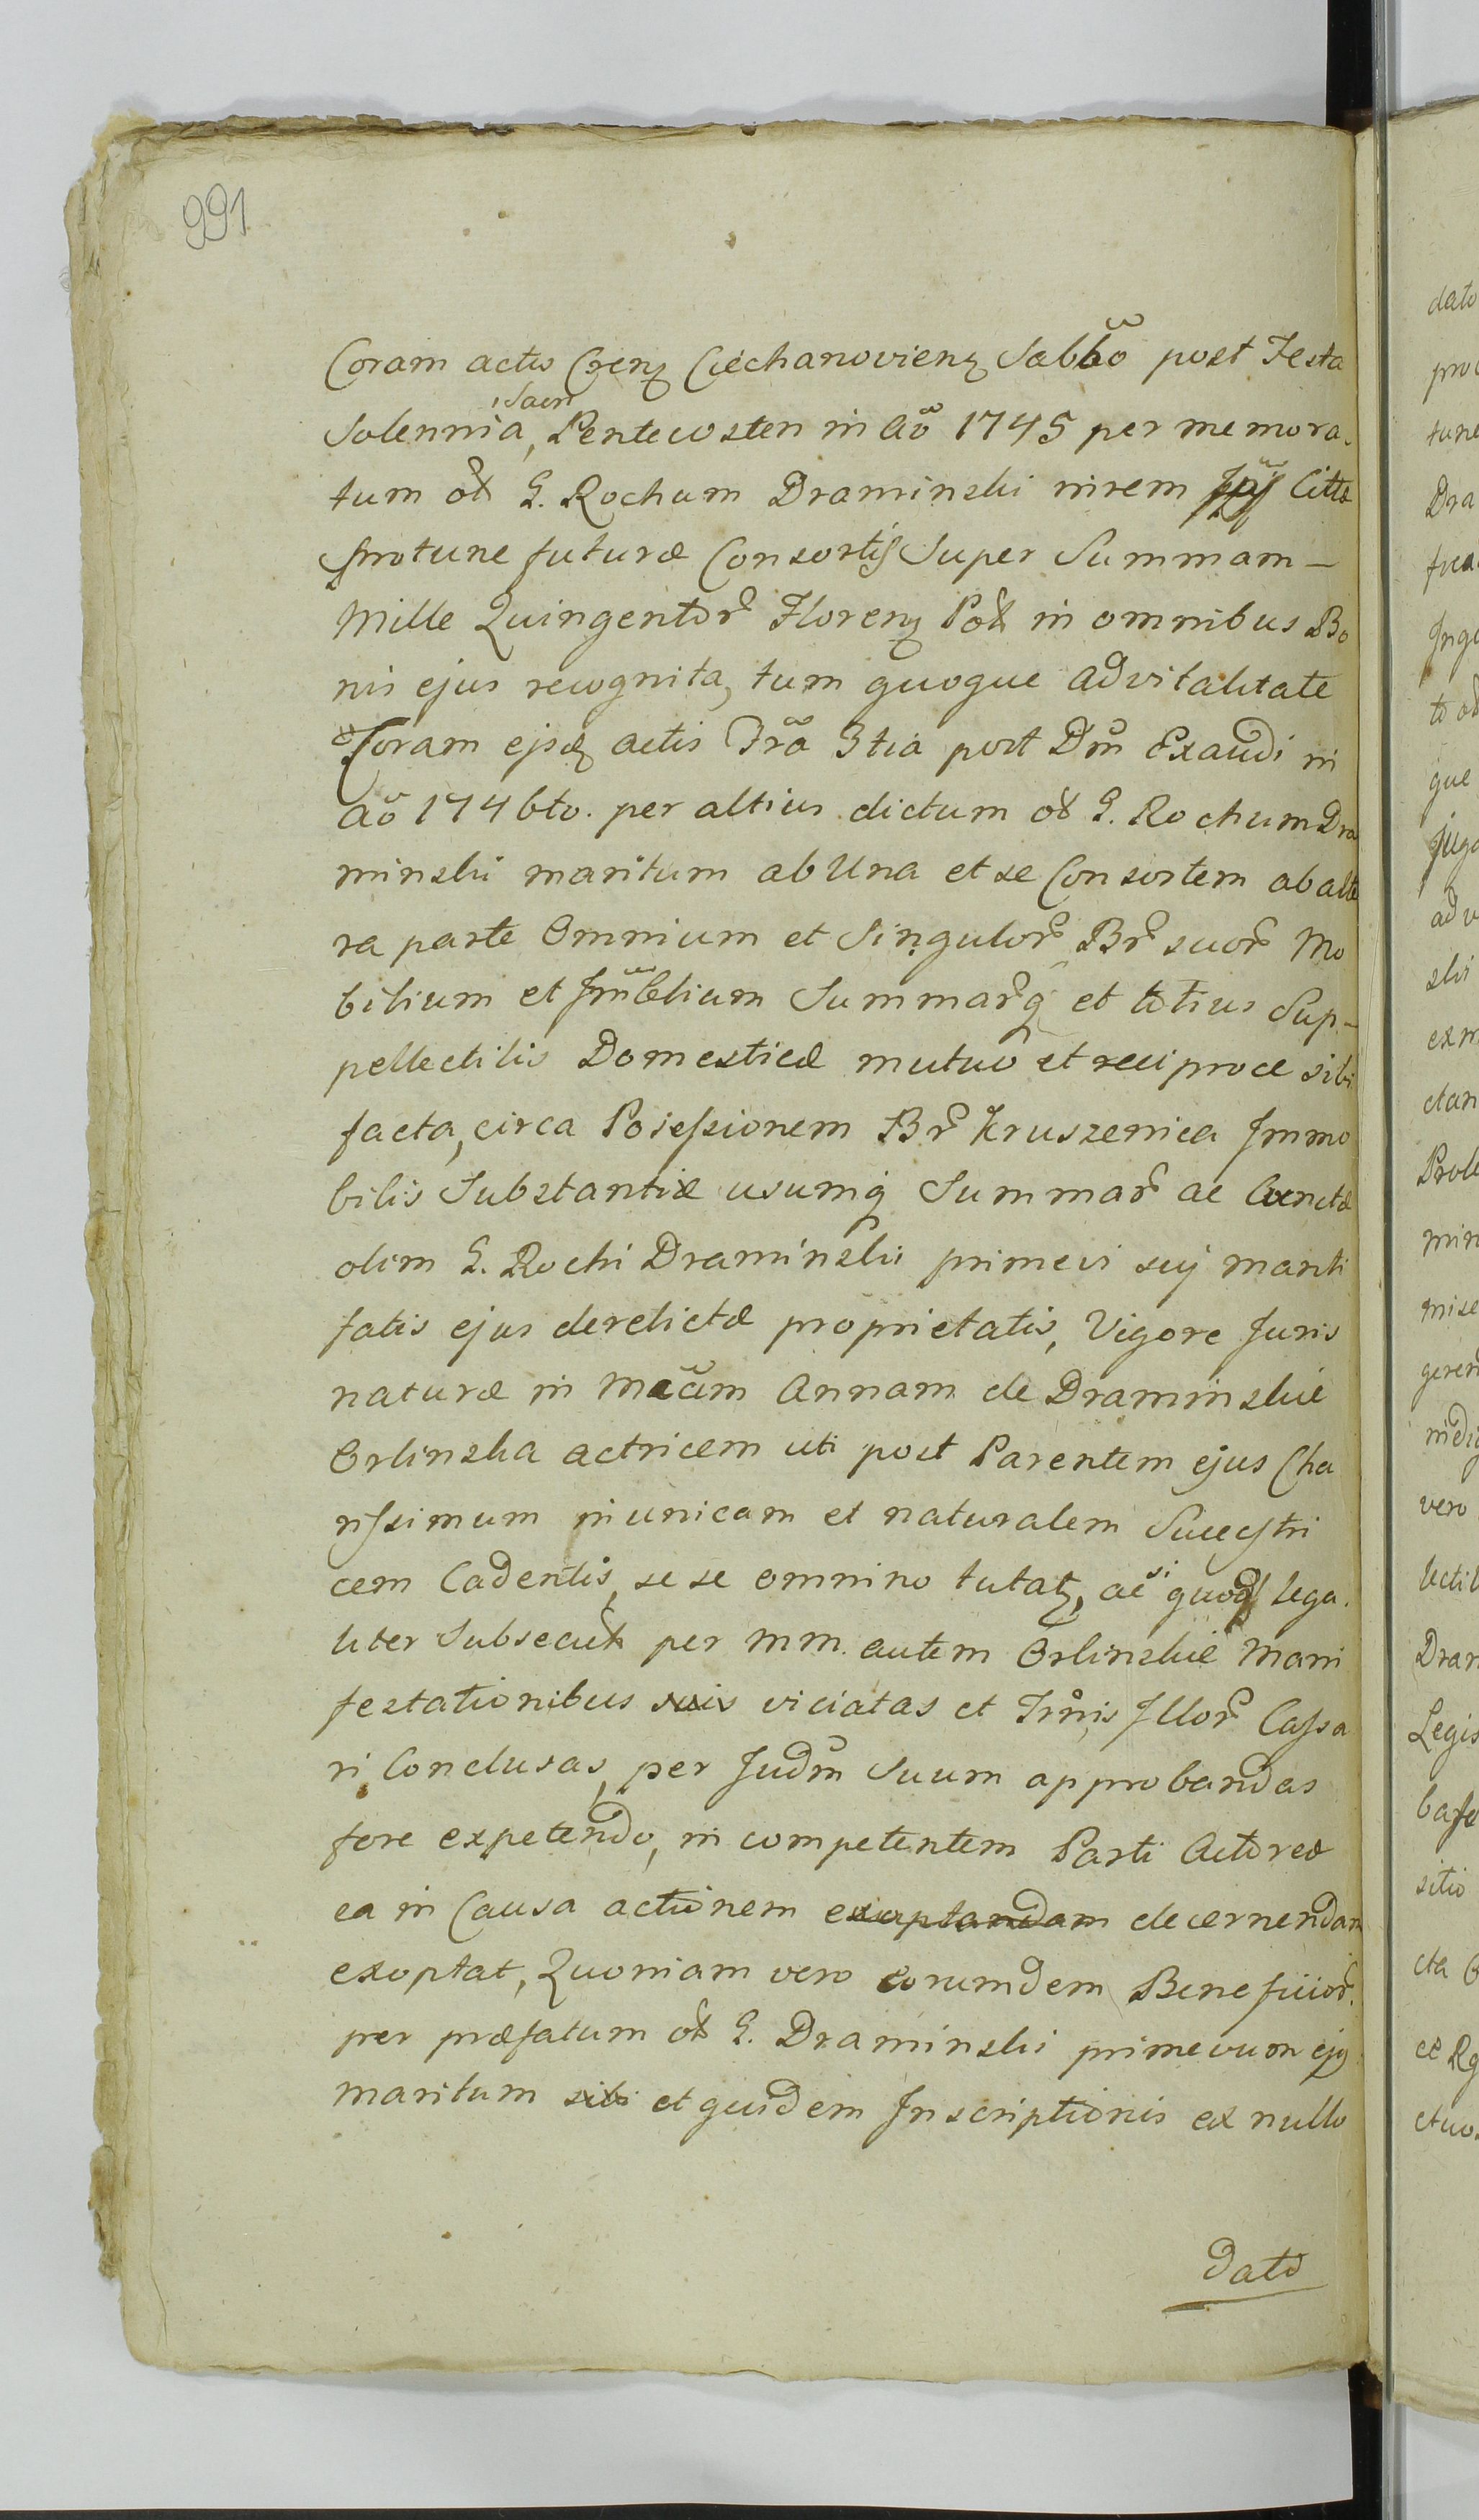 991
Coram actis Crenz Ciechanovienz Sabbo post Festa
Solennia, Sacri Pentecosten in Ao 1745 per memora-
tum ol G. Rochum Draminski in rem Cittæ
protunc futuræ Consortis Super Summam –
Mille Quingentor Florenz Pol in omnibus Bo
nis ejus recognita, tum quoque advitalitate
Coram ejsdz actis Fra 3tia post Dm Exaudi in
Ao 1746to. per altius dictum ol G. Rochum Dra
minski maritum ab Una et se Consortem ab alte
ra parte Omnium et Singulor Br suor Mo
bilium et Immblium Summarq et totius Sup-
pellectilis Domesticæ mutuo et reciproce sibi
facta, circa Posessionem Br Kruszenica Immo
bilis Substantiæ usumq Summar ac Cunctæ
olim G. Rochi Draminski primevi sui mariti
fatis ejus derelictæ proprietatis, Vigore Juris
naturæ in Mcam Annam de Draminskie
Orlinska actricem uti post Parentem ejus Cha
rissimum in unicam et naturalem Succestri
cem Cadentis, se se omnino tutatz, ac si quods lega-
liter Subsecut per MM. autem Orlinskie Mani
festationibus suis viciatas et Trmis Illor Cassa
ri Conclusas, per Judm Suum approbandas
fore expetendo, in competentem Parti Actoreæ
ea in Causa actionem exoptandam decernendam
exoptat, Quoniam vero eorumdem Beneficior
per præfatum ol G. Draminski primevum ejq
maritum sibi et quidem Inscriptionis ex nullo
dato